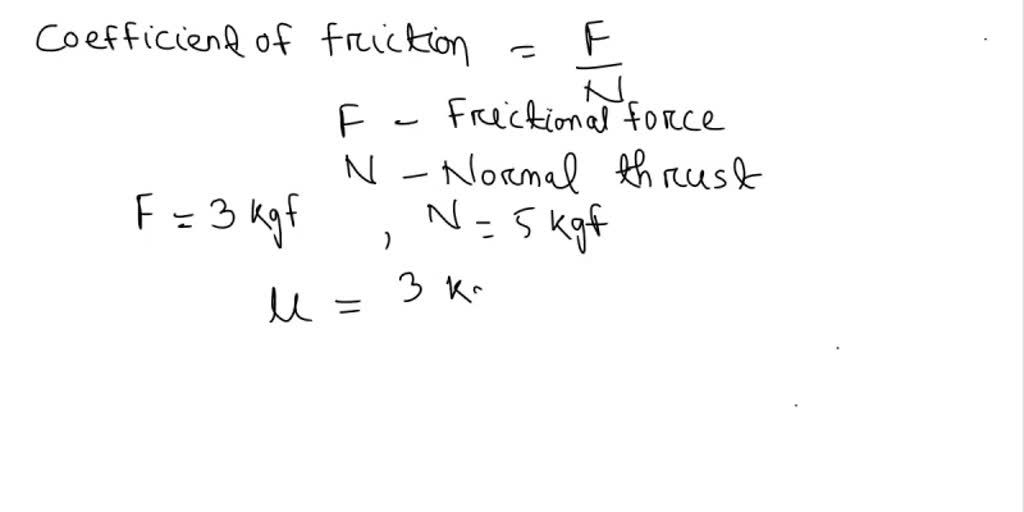 Coefficient of friction = F/N
F - Frictional force
N - Normal thrust
F = 3 kgf , N = 5 kgf
μ = 3 k